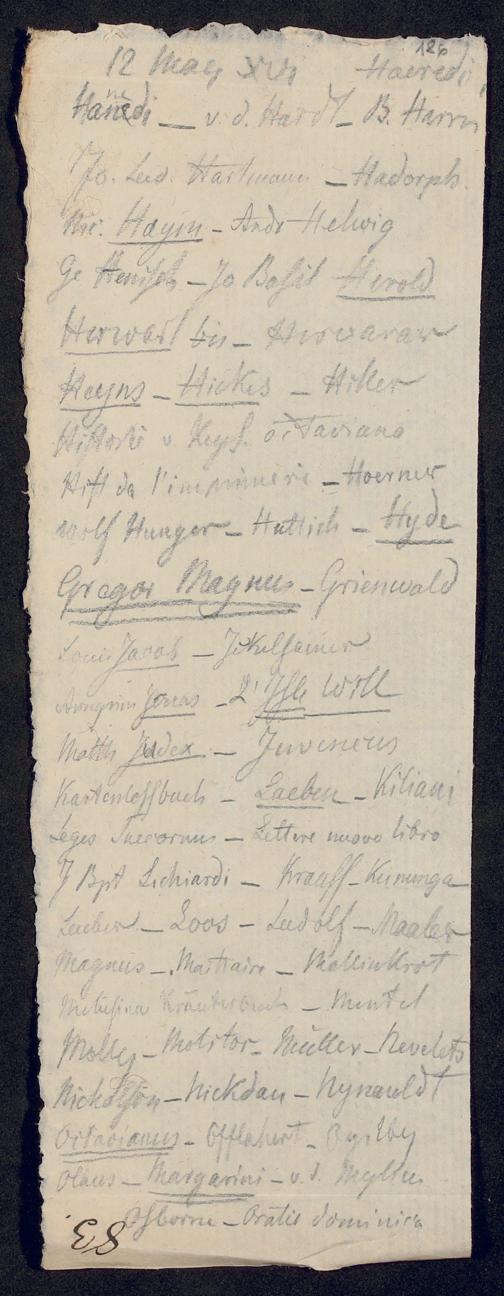 126
12 May XVI Haeredi
Hanedi — v. d. Hardt — B. Harris
Jo. Lud. Hartmann — Hadorph.
Nic. Haym — Andr Helwig
Ge Henisch — Jo Basil Herold
Herward bis — Hervarar
Heyns — Hickes — Hiller
Historie v Keys. Octaviano
Hist da l'imprimerie — Hoerner
Wolf Hunger — Huttich — Hyde
Gregor Magnus — Grienwald
Louis Jacob — Jekelhaimer
Arngrim Jonas — L' Isle Will
Matth Judex — Juvencus
Kartenlossbuch — Laeben — Kiliani
Leges Suecorum — Lettere nuovo libro
J Bpt Lichiardi — Kraaff — Kununga
Leuber — Loos — Ludolf — Maaler
Magnus — Maittaire — Mallinkrot
Melusina Kräuterbuch — Mentel
Moller — Molitor — Müller — Nevelets
Nicholson — Nickdan — Nynauldt
Octavianus — — Ogilby
Olaus — Margarini — v. d. Mylius
Osborne — Oratio dominica
83